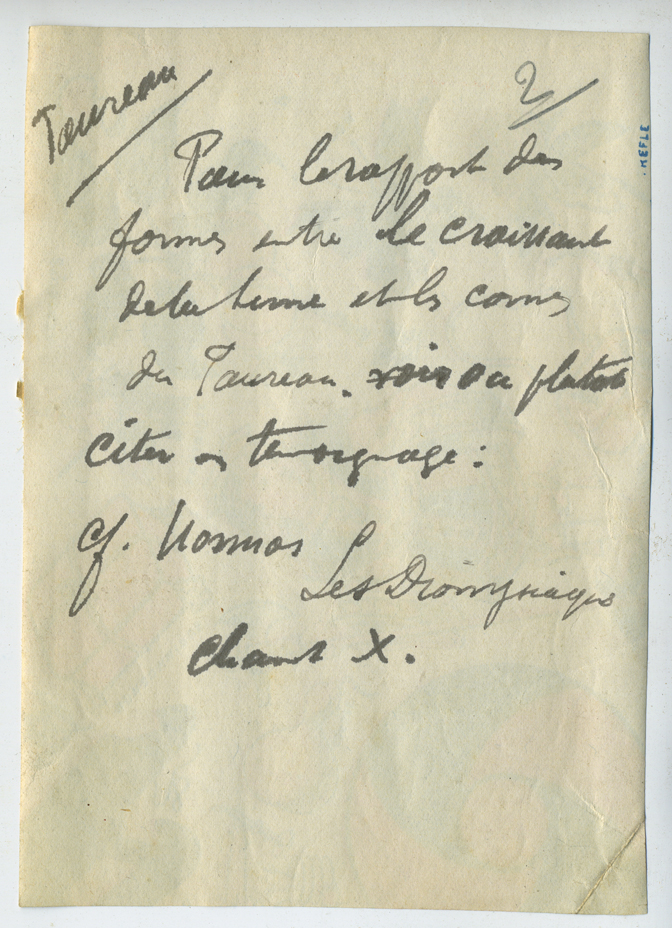 Taureau
2
Pour le rapport des
formes entre le croissant
de la lune et les cornes
du Taureau. voir ou plutôt
citer en témoignage :
cf. Nonnos
Les Dionysiaques
chant X.
KEFLE